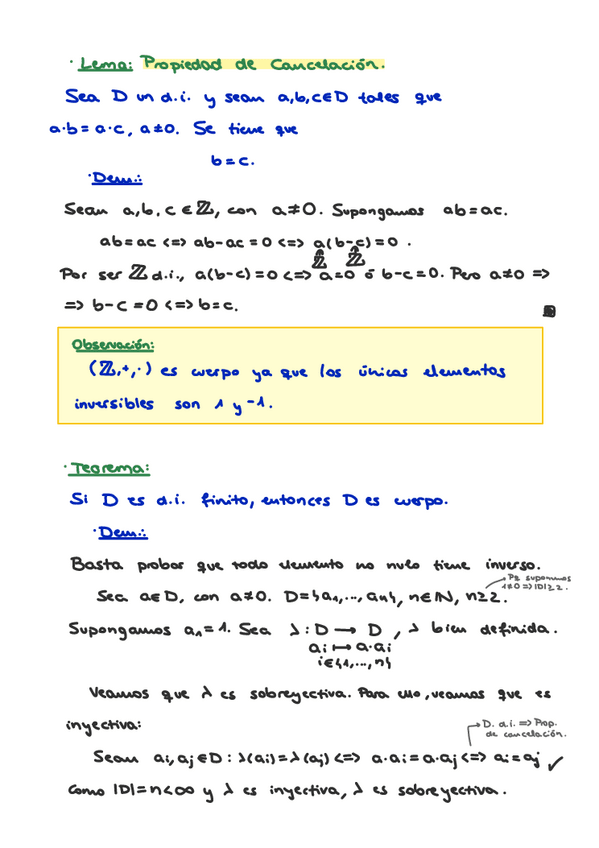 · Lema: Propiedad de Cancelación.
Sea D un d.i. y sean a,b,c∈D tales que
a·b = a·c, a≠0. Se tiene que
b=c.
· Dem.:
Sean a,b,c ∈ ℤ, con a≠0. Supongamos ab=ac.
ab=ac <=> ab-ac = 0 <=> a(b-c)=0.
ℤ ℤ
Por ser ℤ d.i., a(b-c)=0 <=> a=0 ó b-c=0. Pero a≠0 =>
=> b-c=0 <=> b=c.
Observación:
(ℤ,+,·) es cuerpo ya que los únicos elementos
inversibles son 1 y -1.
· Teorema:
Si D es d.i. finito, entonces D es cuerpo.
· Dem.:
Basta probar que todo elemento no nulo tiene inverso.
Pq suponemos
1≠0 => |D|≥2.
Sea a∈D, con a≠0. D={a₁,...,aₙ}, n∈ℕ, n≥2.
Supongamos a₁=1. Sea λ: D → D, λ bien definida.
aᵢ ↦ a·aᵢ
i∈{1,...,n}
Veamos que λ es sobreyectiva. Para ello, veamos que es
inyectiva:
D. d.i. => Prop.
de cancelación.
Sean aᵢ,aⱼ∈D: λ(aᵢ)=λ(aⱼ) <=> a·aᵢ=a·aⱼ <=> aᵢ=aⱼ ✓
Como |D|=n<∞ y λ es inyectiva, λ es sobreyectiva.